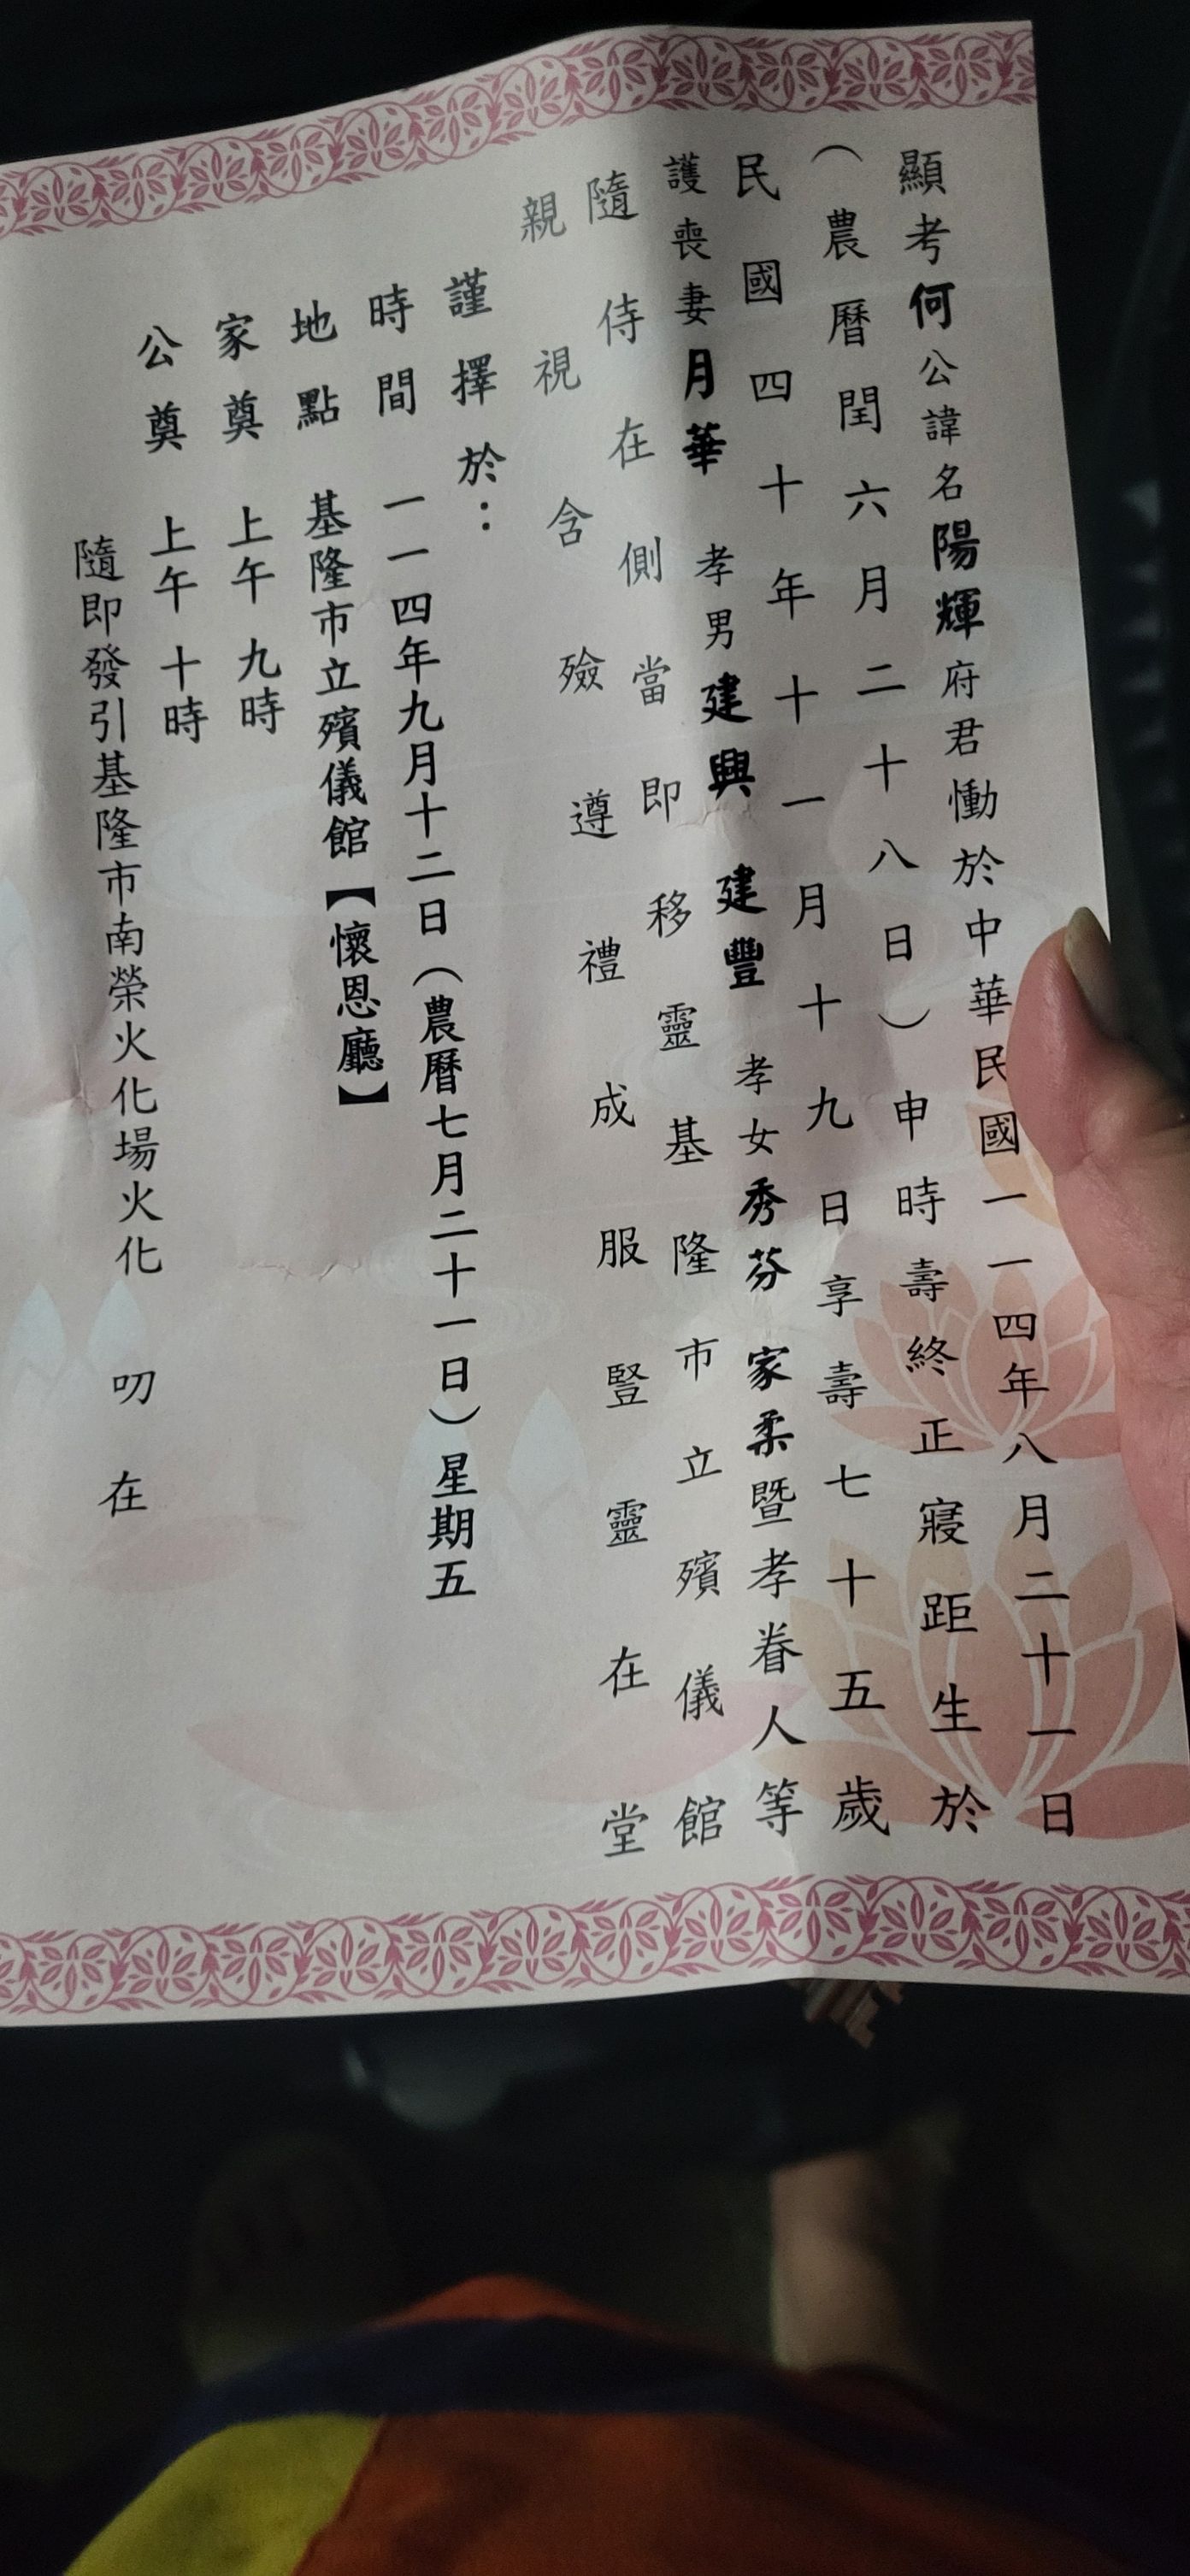 顯考何公諱名陽輝府君慟於中華民國一一四年八月二十一日
（農曆閏六月二十八日）申時壽終正寢距生於
民國四十年十一月十九日享壽七十五歲
護喪妻月華 孝男建興 建豐 孝女秀芬 家柔暨孝眷人等
隨侍在側當即移靈基隆市立殯儀館
親視含殮遵禮成服豎靈在堂
謹擇於：
時間 一一四年九月十二日（農曆七月二十一日）星期五
地點 基隆市立殯儀館【懷恩廳】
家奠 上午九時
公奠 上午十時
隨即發引基隆市南榮火化場火化 叨在